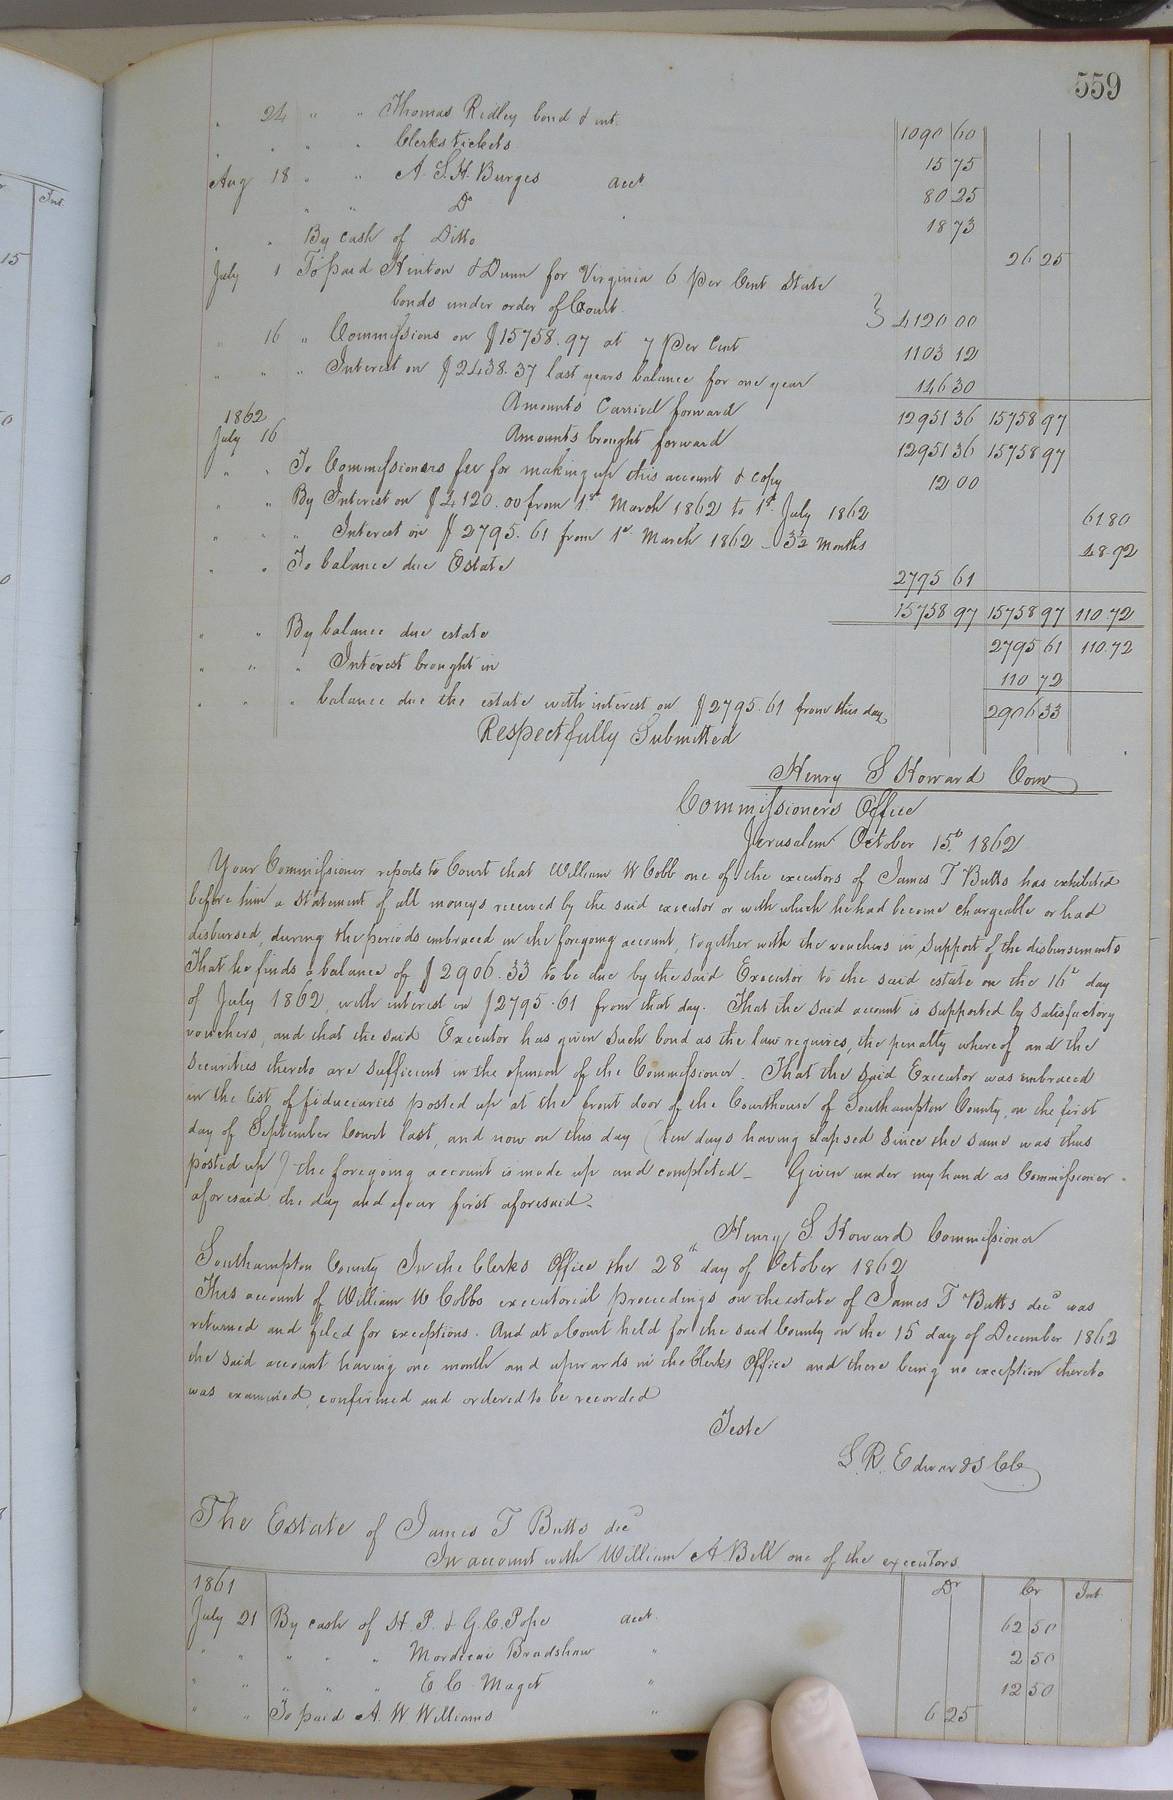 559
" 24 " " Thomas Ridley bond & int. 1090 60
" " " Clerks tickets 15 75
Aug 18 " " A. S. H. Burges acct 80 25
" " Do 18 73
" " By cash of Ditto 26 25
July 1 To paid Kinton & Dunn for Virginia 6 Per Cent State
bonds under order of Court. } 4120 00
" 16 " Commissions on $15758.97 at 7 Per Cent 1103 12
" " " Interest on $2438.37 last years balance for one year 146 30
Amounts Carried forward 12951 36 15758 97
1862
July 16 Amounts brought forward 12951 36 15758 97
" " To Commissioners fee for making up this account & copy 12 00
" " By Interest on $4120.00 from 1st March 1862 to 1st July 1862 61 80
" " " Interest on $2795.61 from 1st March 1862 - 3½ Months 48.92
" " To balance due Estate 2795 61
15758 97 15758 97 110.72
" " By balance due estate 2795 61 110.72
" " " Interest brought in 110 72
" " " balance due the estate with interest on $2795.61 from this day 2906 33
Respectfully Submitted
Henry S Howard Com
Commissioners Office
Jerusalem October 15th 1862
Your Commissioner reports to Court that William W Cobb one of the executors of James T Butts has exhibited
before him a Statement of all moneys received by the said executor or with which he had become chargeable or had
disbursed, during the periods embraced in the foregoing account, together with the vouchers in Support of the disbursements
That he finds a balance of $2906.33 to be due by the said Executor to the said estate on the 16th day
of July 1862, with interest on $2795.61 from that day. That the said account is supported by satisfactory
vouchers, and that the said Executor has given such bond as the law requires, the penalty whereof and the
Securities thereto are sufficient in the opinion of the Commissioner. That the said Executor was embraced
in the list of fiduciaries posted up at the front door of the Courthouse of Southampton County, on the first
day of September Court last, and now on this day (ten days having elapsed since the same was thus
posted up) the foregoing account is made up and completed - Given under my hand as Commissioner
aforesaid the day and year first aforesaid -
Henry S Howard Commissioner
Southampton County In the Clerks Office the 28th day of October 1862
This account of William W Cobbs executorial proceedings on the estate of James T Butts decd was
returned and filed for exceptions. And at a Court held for the said County on the 15 day of December 1862
the said account having one month and upwards in the Clerks Office and there being no exception thereto
was examined, confirmed and ordered to be recorded
Teste
L. R. Edwards CC
The Estate of James T Butts decd
In account with William A Bell one of the executors
1861 Dr Cr Int
July 21 By cash of H. P. & G. C. Pope acct 62 50
" " " " " Mordecai Bradshaw " 2 50
" " " " " E C Maget " 12 50
" " To paid A. W Williams " 6 25